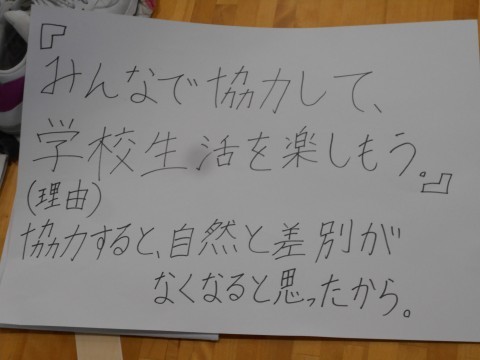 『みんなで協力して、
学校生活を楽しもう。』
(理由)
協力すると、自然と差別が
なくなると思ったから。